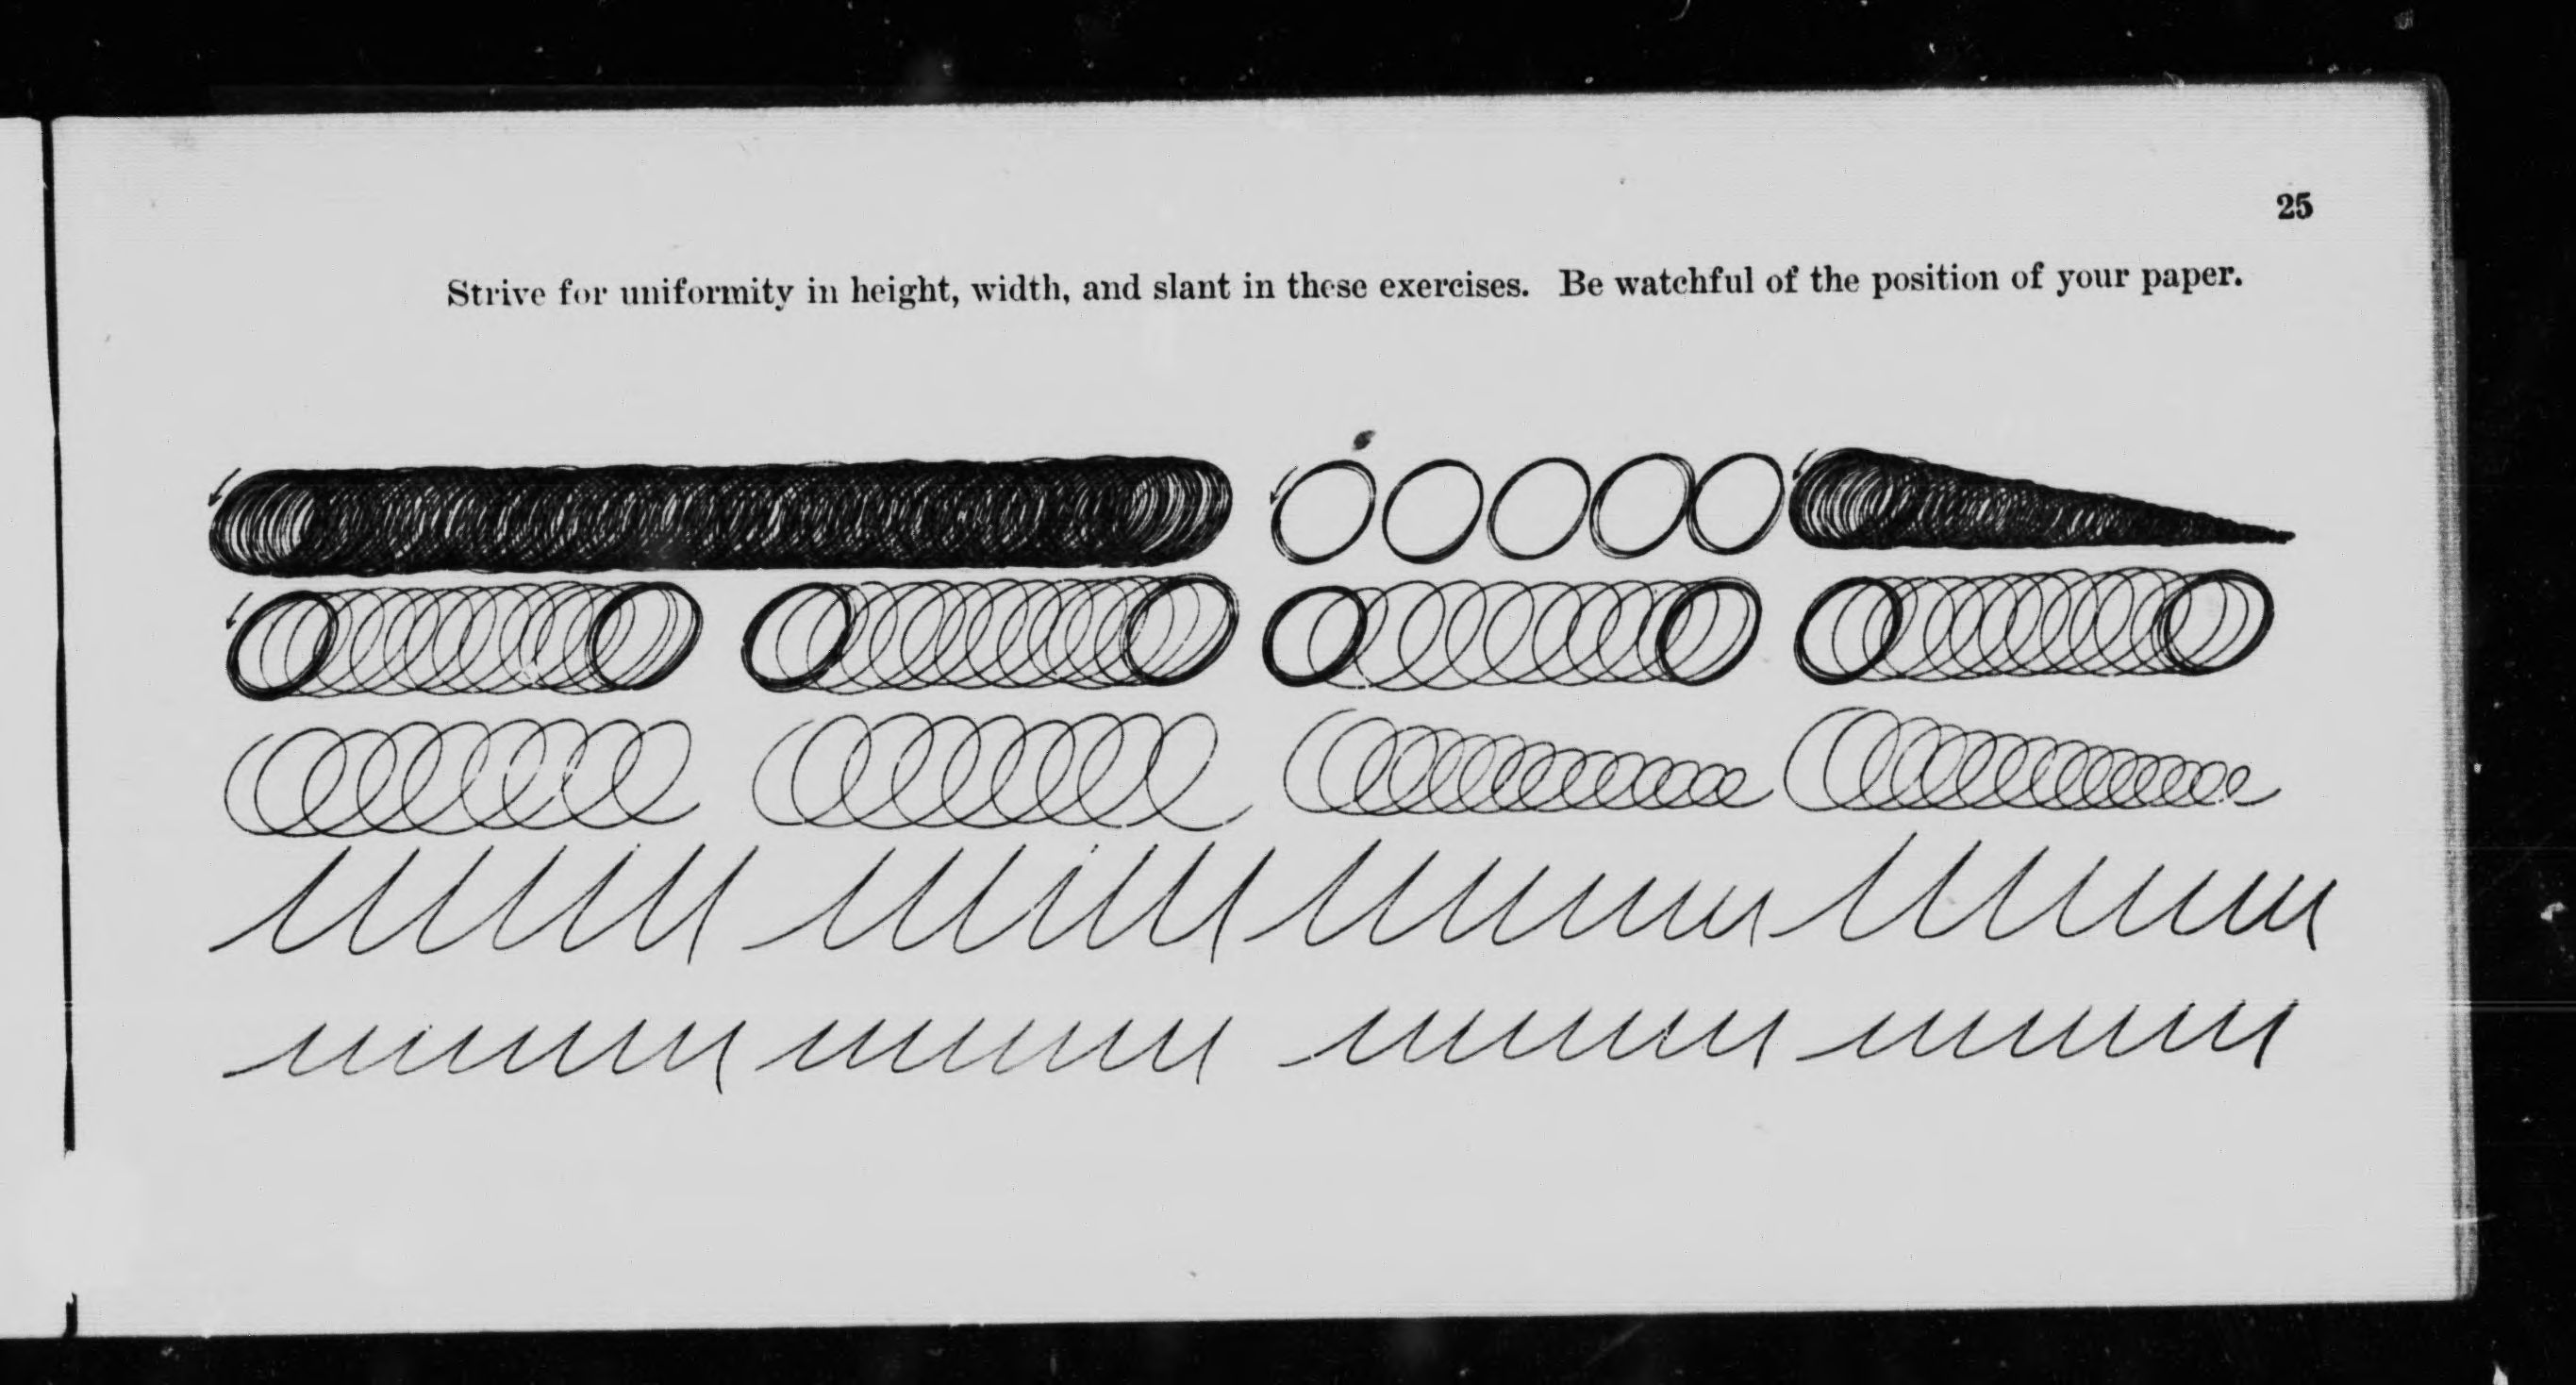 25
Strive for uniformity in height, width, and slant in these exercises. Be watchful of the position of your paper.